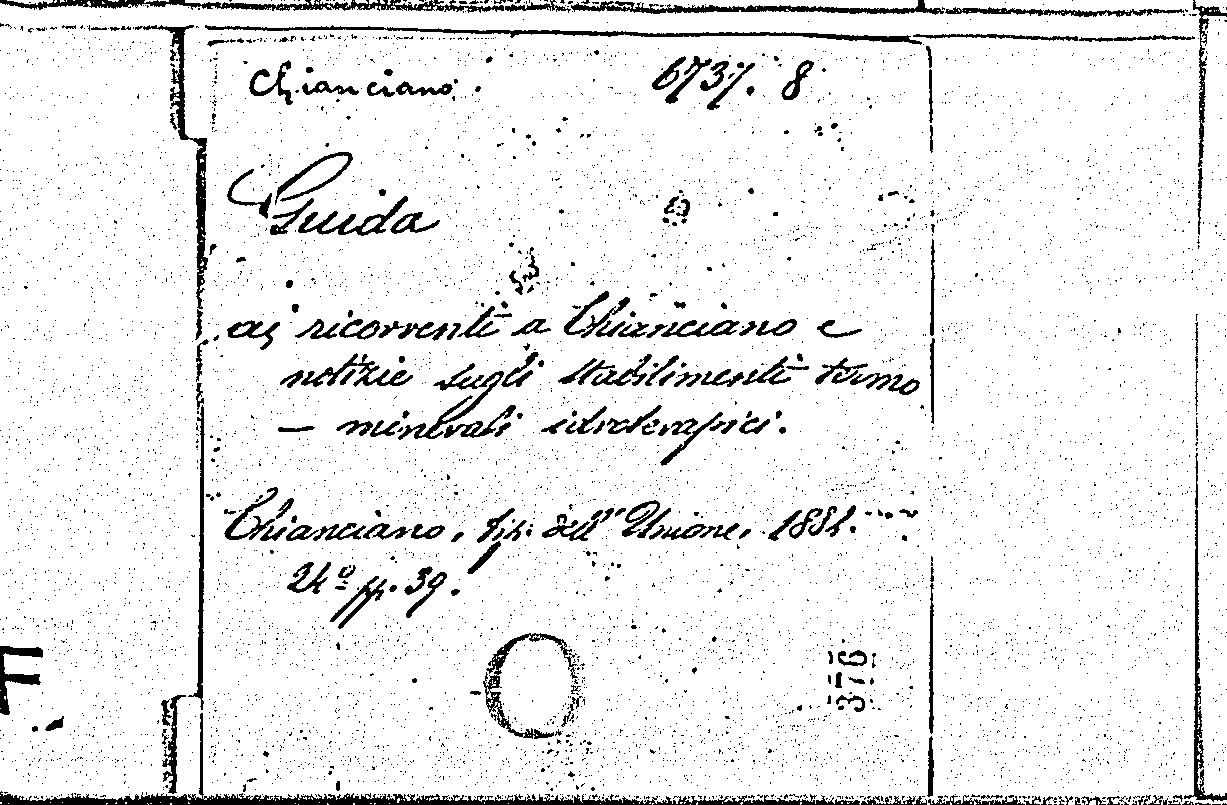 Chianciano. 6737. 8
Guida
ai ricorrenti a Chianciano e
notizie sugli stabilimenti termo
- minerali idroterapici.
Chianciano, tip. dell'Unione, 1881.
24º pp. 39.
O
376
F